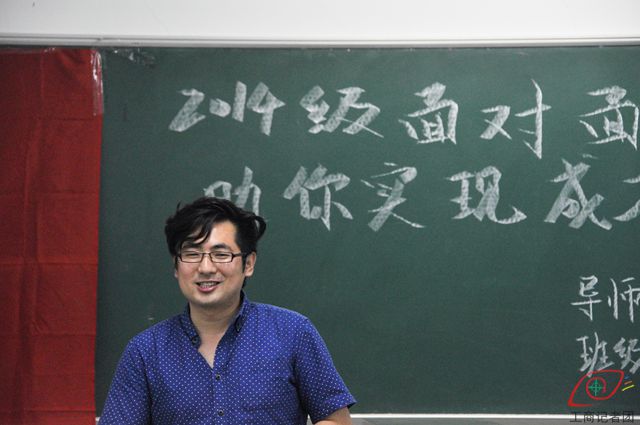 2014级面对面
助你实现成
导师
班级
工商记者团